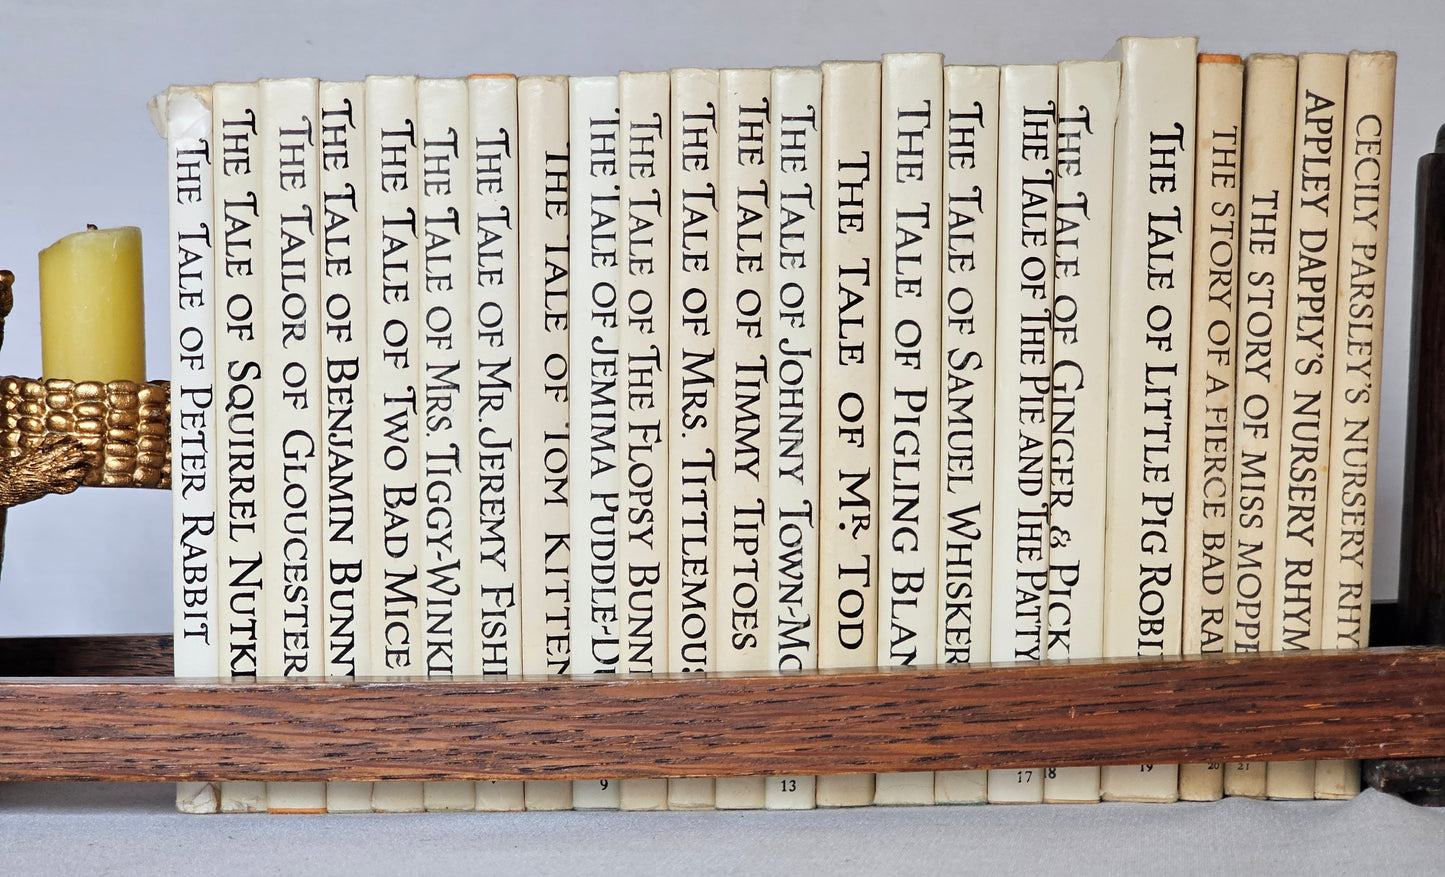 THE TALE OF PETER RABBIT
THE TALE OF SQUIRREL NUTKI
THE TAILOR OF GLOUCESTER
THE TALE OF BENJAMIN BUNN
THE TALE OF TWO BAD MICE
THE TALE OF MRS. TIGGY-WINKL
THE TALE OF MR. JEREMY FISH
THE TALE OF TOM KITTEN
THE TALE OF JEMIMA PUDDLE-DU
THE TALE OF THE FLOPSY BUNNI
THE TALE OF MRS. TITTLEMOUS
THE TALE OF TIMMY TIPTOES
THE TALE OF JOHNNY TOWN-MO
THE TALE OF MR. TOD
THE TALE OF PIGLING BLAN
THE TALE OF SAMUEL WHISKER
THE TALE OF THE PIE AND THE PATTY
THE TALE OF GINGER & PICK
THE TALE OF LITTLE PIG ROBI
THE STORY OF A FIERCE BAD RA
THE STORY OF MISS MOPPE
APPLEY DAPPLY'S NURSERY RHYM
CECILY PARSLEY'S NURSERY RHY
9
13
17
18
19
20
21